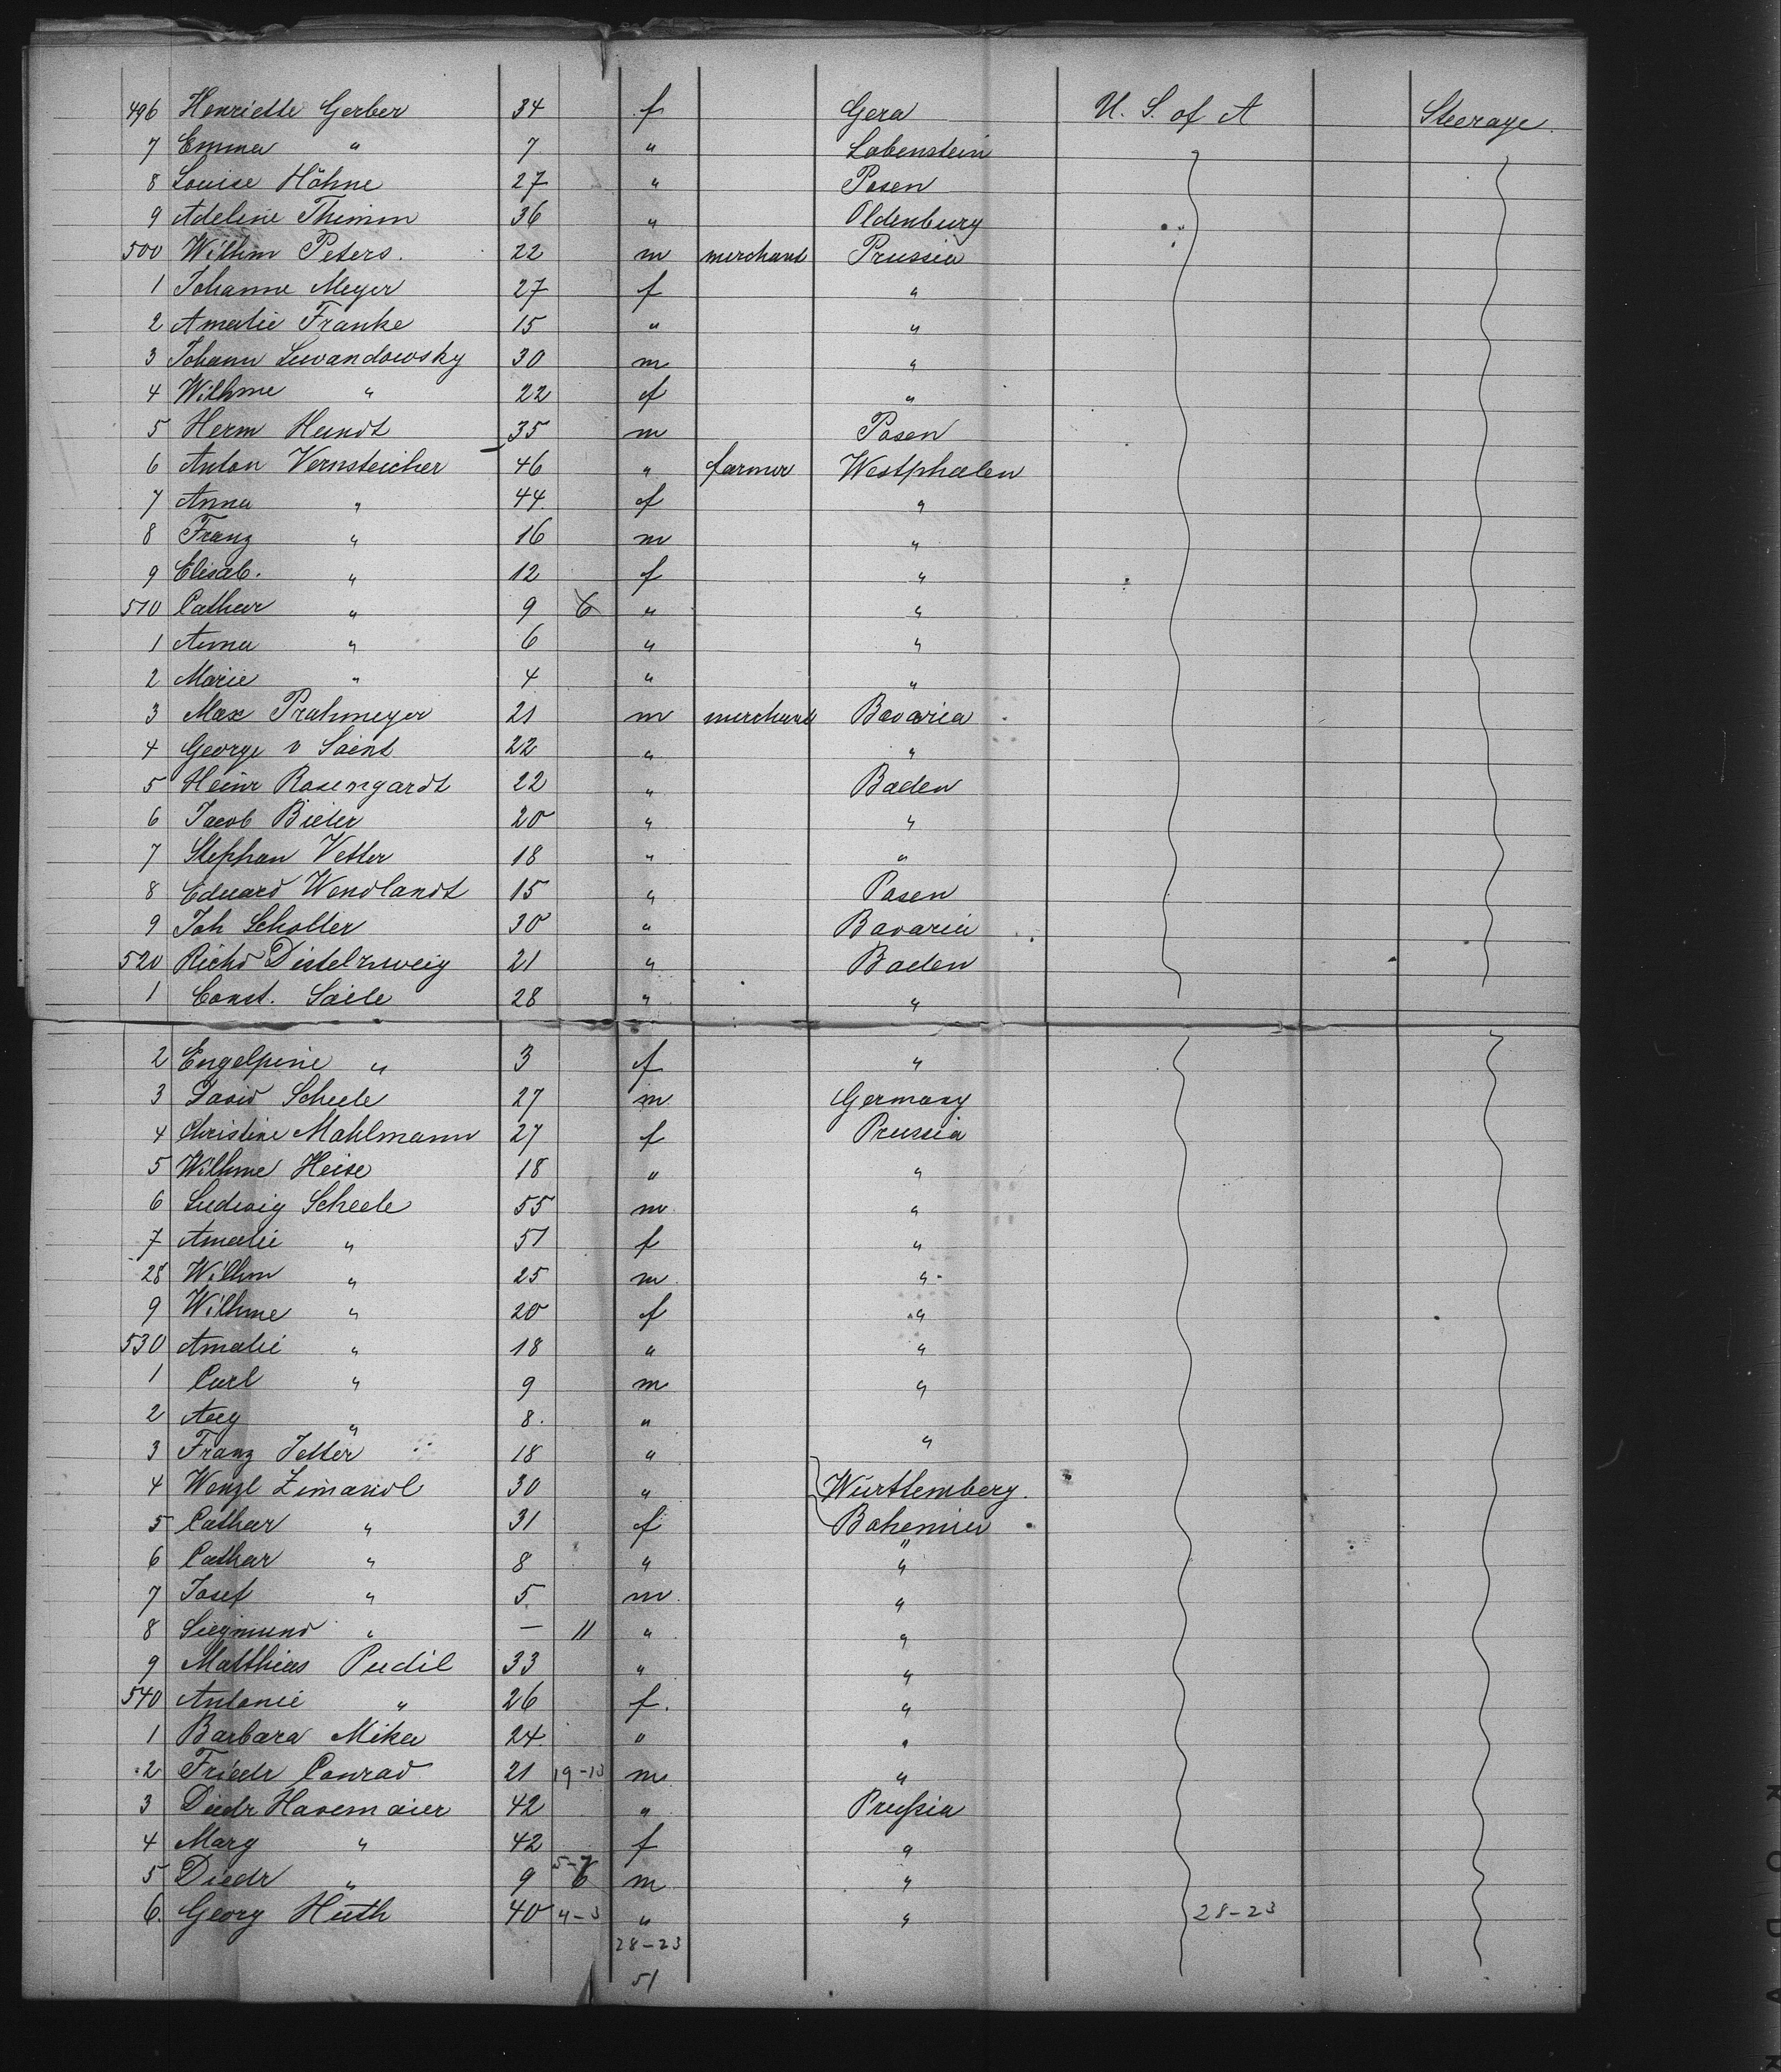 496 Henriette Gerber 34 f Gera U. S. of A Steerage.
7 Emma " 7 " Lobenstein
8 Louise Höhne 27 " Posen
9 Adeline Thimm 36 " Oldenburg
500 Wilhm Peters. 22 m merchant Prussia
1 Johanne Meyer 27 f "
2 Amalie Franke 15 " "
3 Johann Lewandowsky 30 m "
4 Wilhme " 22 f "
5 Herm Hundt 35 m Posen
6 Anton Vernsteicher 46 " farmer Westphalen
7 Anna " 44. f "
8 Franz " 16 m "
9 Elisab. " 12 f "
510 Cathar " 9 6 " "
1 Anna " 6 " "
2 Marie " 4 " "
3 Max Prahmeyer 21 m merchant Bavaria
4 George v Saint 22 " "
5 Heinr Rosengardt 22 " Baden
6 Jacob Bieler 20 " "
7 Stephan Vetter 18 " "
8 Eduard Wendlandt 15 " Posen
9 Joh Scholler 30 " Bavaria
520 Richd Distelzweig 21 " Baden
1 Const. Saile 28 " "
2 Engelpine " 3 f "
3 David Scheele 27 m Germany
4 Christine Mahlmann 27 f Prussia
5 Wilhme Heise 18 " "
6 Ludwig Scheele 55 m "
7 Amalie " 51 f "
28 Wilhm " 25 m "
9 Wilhme " 20 f "
530 Amalie " 18 " "
1 Carl " 9 m "
2 Aug " 8. " "
3 Franz Jetter 18 " "
4 Wenzl Zimandl 30 " Württemberg.
5 Cathar " 31 f Bohemia
6 Cathar " 8 " " "
7 Josef " 5. m. "
8 Siegmund " — 11 " "
9 Matthias Pudil 33 " "
540 Antonie " 26 f. "
1 Barbara Mika 24. " "
2 Friedr Conrad 21 19-13 m "
3 Diedr Havemaier 42 " Prußia
4 Marg " 42 f "
5 Diedr " 9 5-7 6 m "
6. Georg Huth 40 4-3 " " 28-23
28-23
51
KODAK